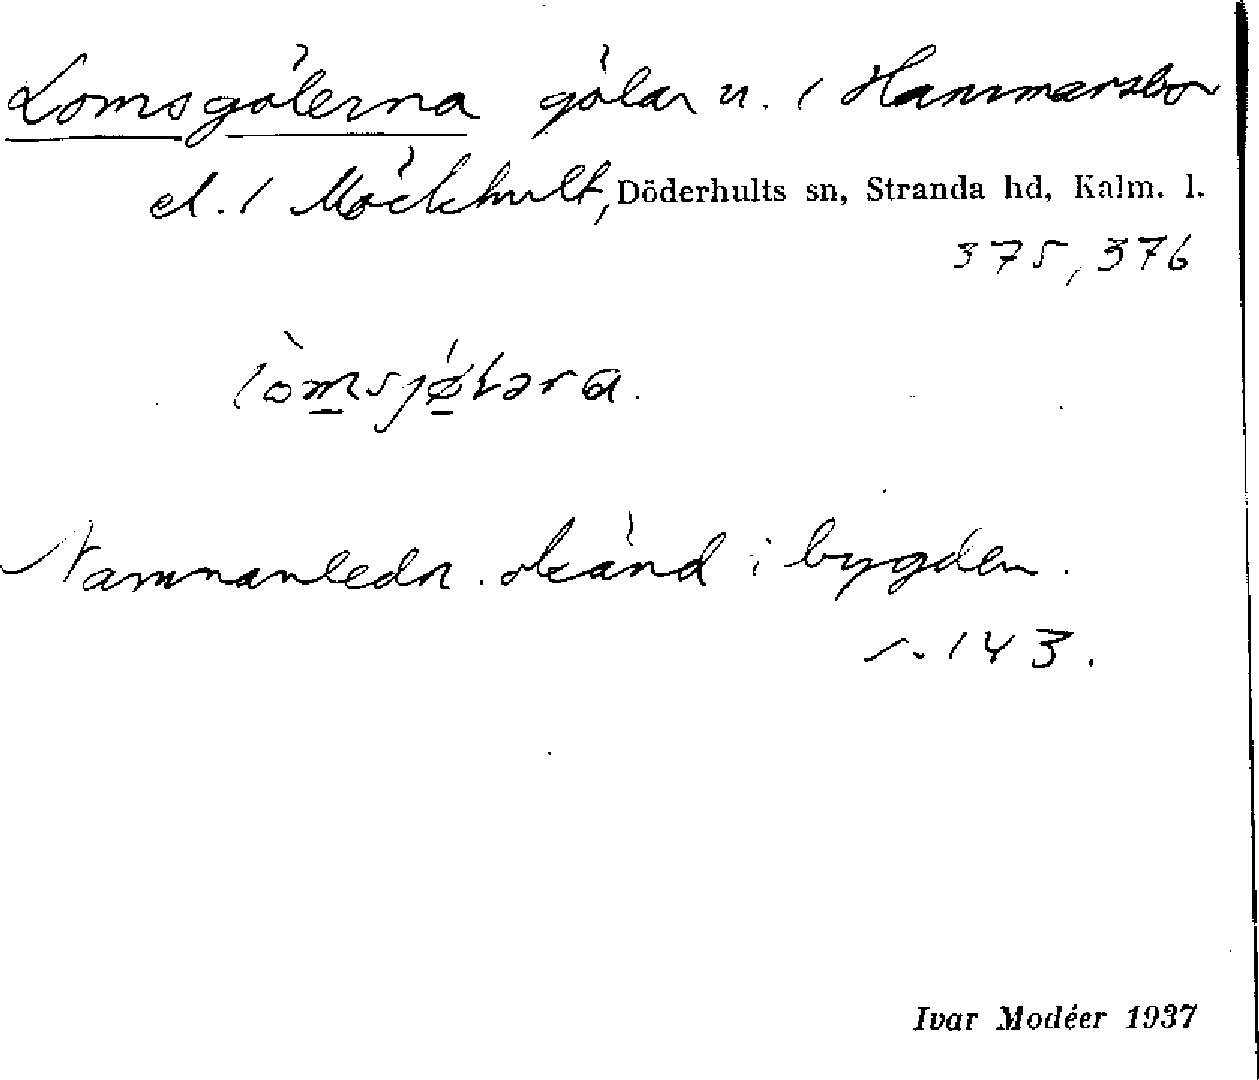 Lomsgölerna gölar u. 1 Hammarsbo
el. 1 Möckhult, Döderhults sn, Stranda hd, Kalm. l.
375, 376
lòmsjǿlәra.
Namnanledn. okänd i bygden.
s. 143.
Ivar Modéer 1937